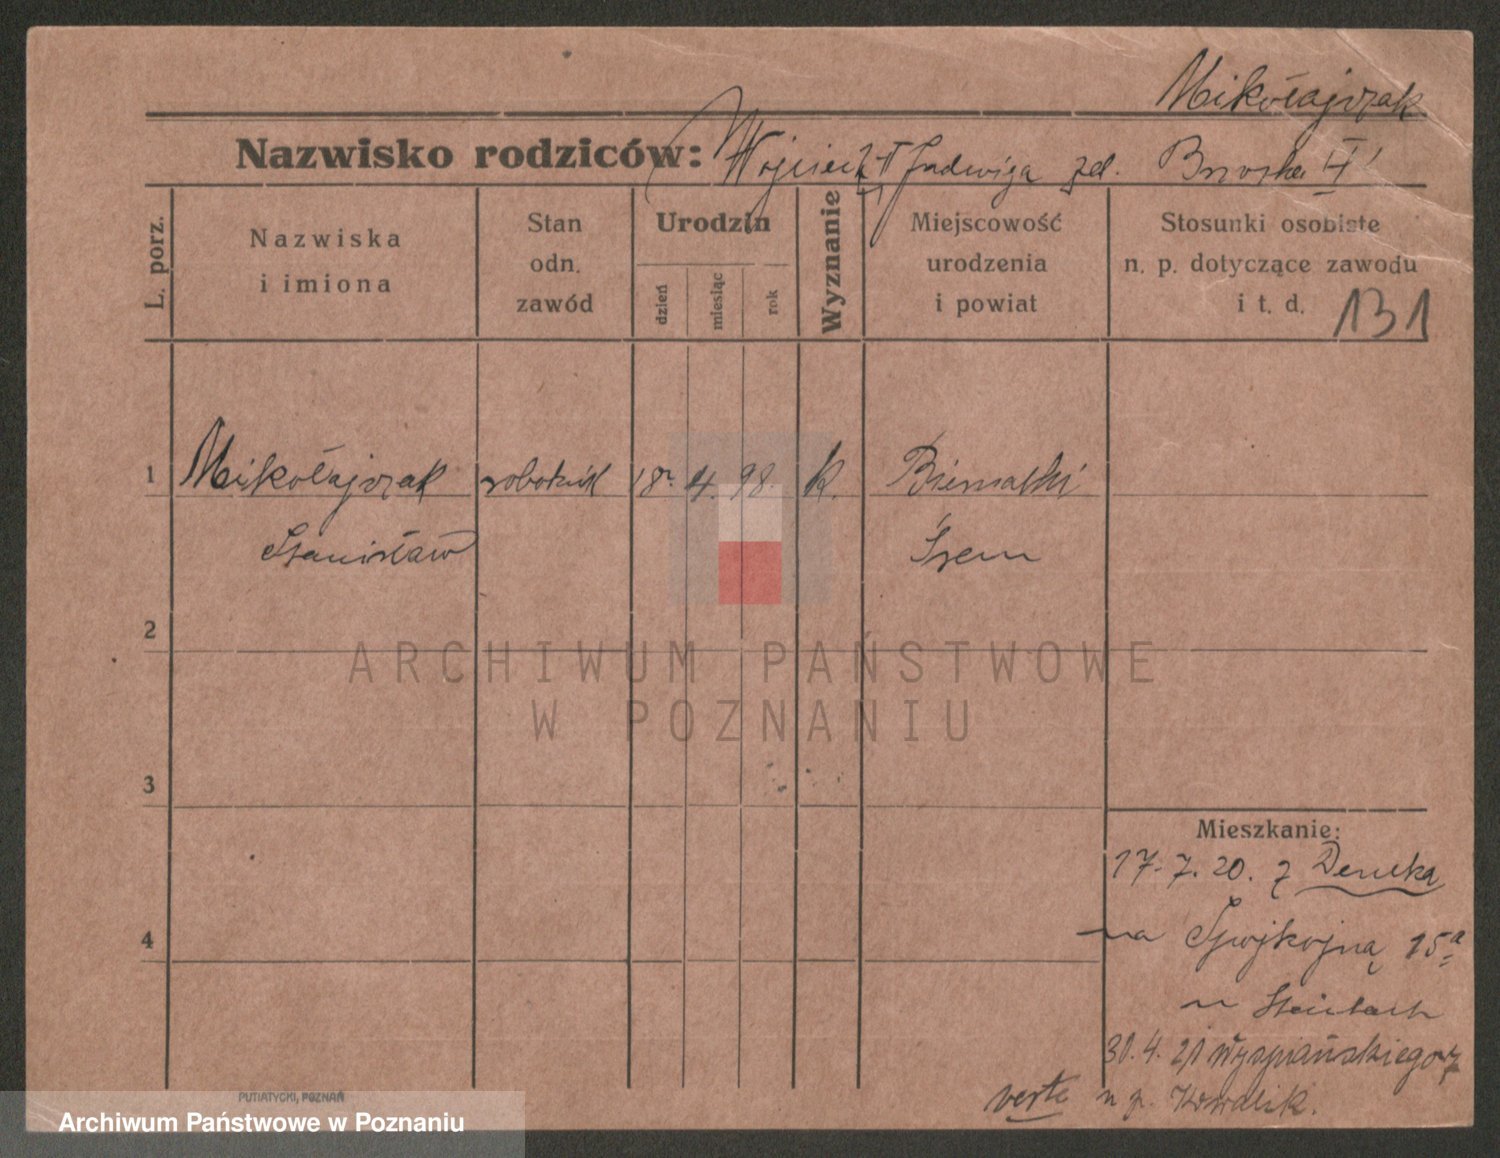 Mikołajczak
Nazwisko rodziców: Wojciech Jadwiga zd.
L. porz.
Nazwiska
i imiona
Stan
odn.
zawód
Urodzin
dzień
miesiąc
rok
Wyznanie
Miejscowość
urodzenia
i powiat
Stosunki osobiste
n. p. dotyczące zawodu
i t. d.
131
1 Mikołajczak robotnik 18. 4. 98. k. Biernatki
Stanisław Śrem
2
3
4
ARCHIWUM PAŃSTWOWE
W POZNANIU
Mieszkanie:
17. 7. 20. z
na Spojkojną 15a
30. 4. 21 Wyspiańskiego
verte n p. Kowalik.
PUTIATYCKI, POZNAŃ
Archiwum Państwowe w Poznaniu